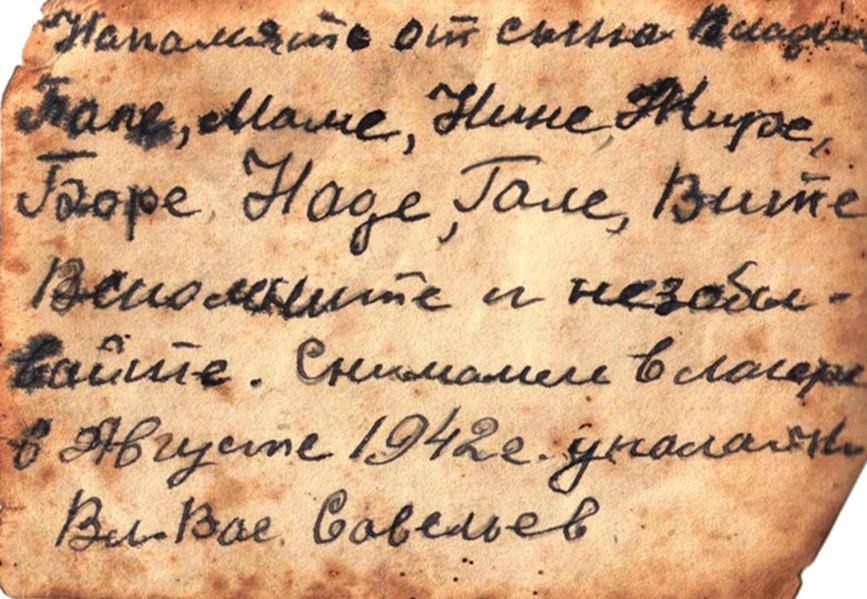 Напомять от сына Влади
Папе, Маме, Нине, Мире,
Боре, Наде, Гале, Вите
Вспомните и незабы-
вайте. Снимались в лагере
в Августе 1942 г.
Вл. Вас. Савельев